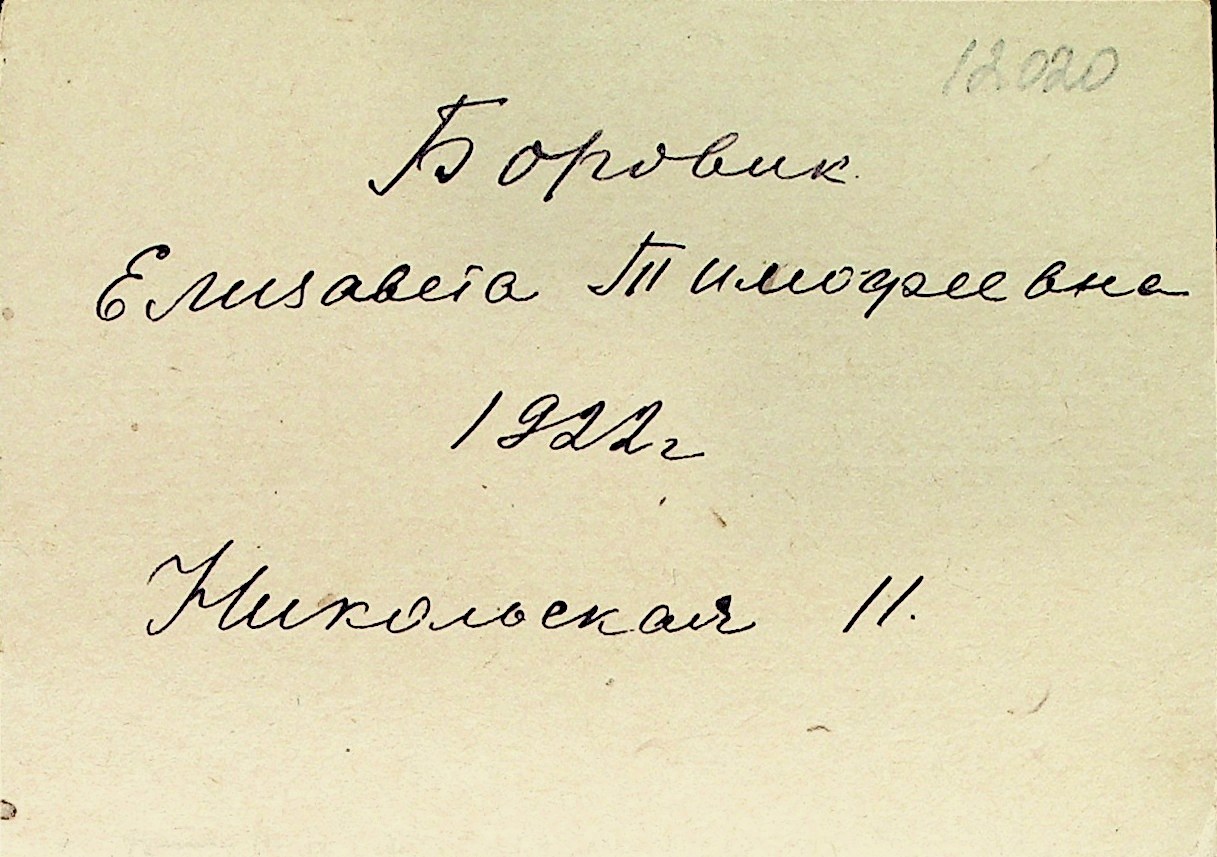 12020
Боровик
Елизавета Тимофеевна
1922г
Никольская 11.